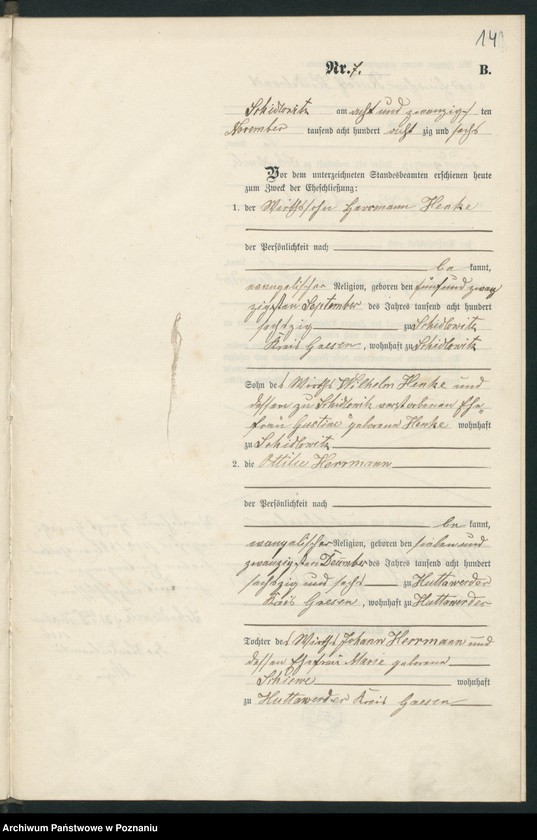 14
Nr. 7. B.
Schidlowitz am acht und zwanzig ten
November tausend acht hundert acht zig und sechs
Vor dem unterzeichneten Standesbeamten erschienen heute
zum Zweck der Eheschließung:
1. der Wirthssohn Herrmann Henke
der Persönlichkeit nach
be kannt,
evangelischer Religion, geboren den fünf und zwan
zigsten September des Jahres tausend acht hundert
sechszig zu Schidlowitz
Kreis Gnesen, wohnhaft zu Schidlowitz
Sohn des Wirths Wilhelm Henke und
dessen zu Schidlowitz verstorbenen Ehe
frau Gustine geborene Henke wohnhaft
zu Schidlowitz
2. die Ottilie Herrmann
der Persönlichkeit nach
be kannt,
evangelischer Religion, geboren den sieben und
zwanzigsten December des Jahres tausend acht hundert
sechszig und sechs zu Huttawerder
Kreis Gnesen, wohnhaft zu Huttawerder
Tochter des Wirths Johann Herrmann und
dessen Ehefrau Marie geborene
Schiewe wohnhaft
zu Huttawerder Kreis Gnesen
Archiwum Państwowe w Poznaniu